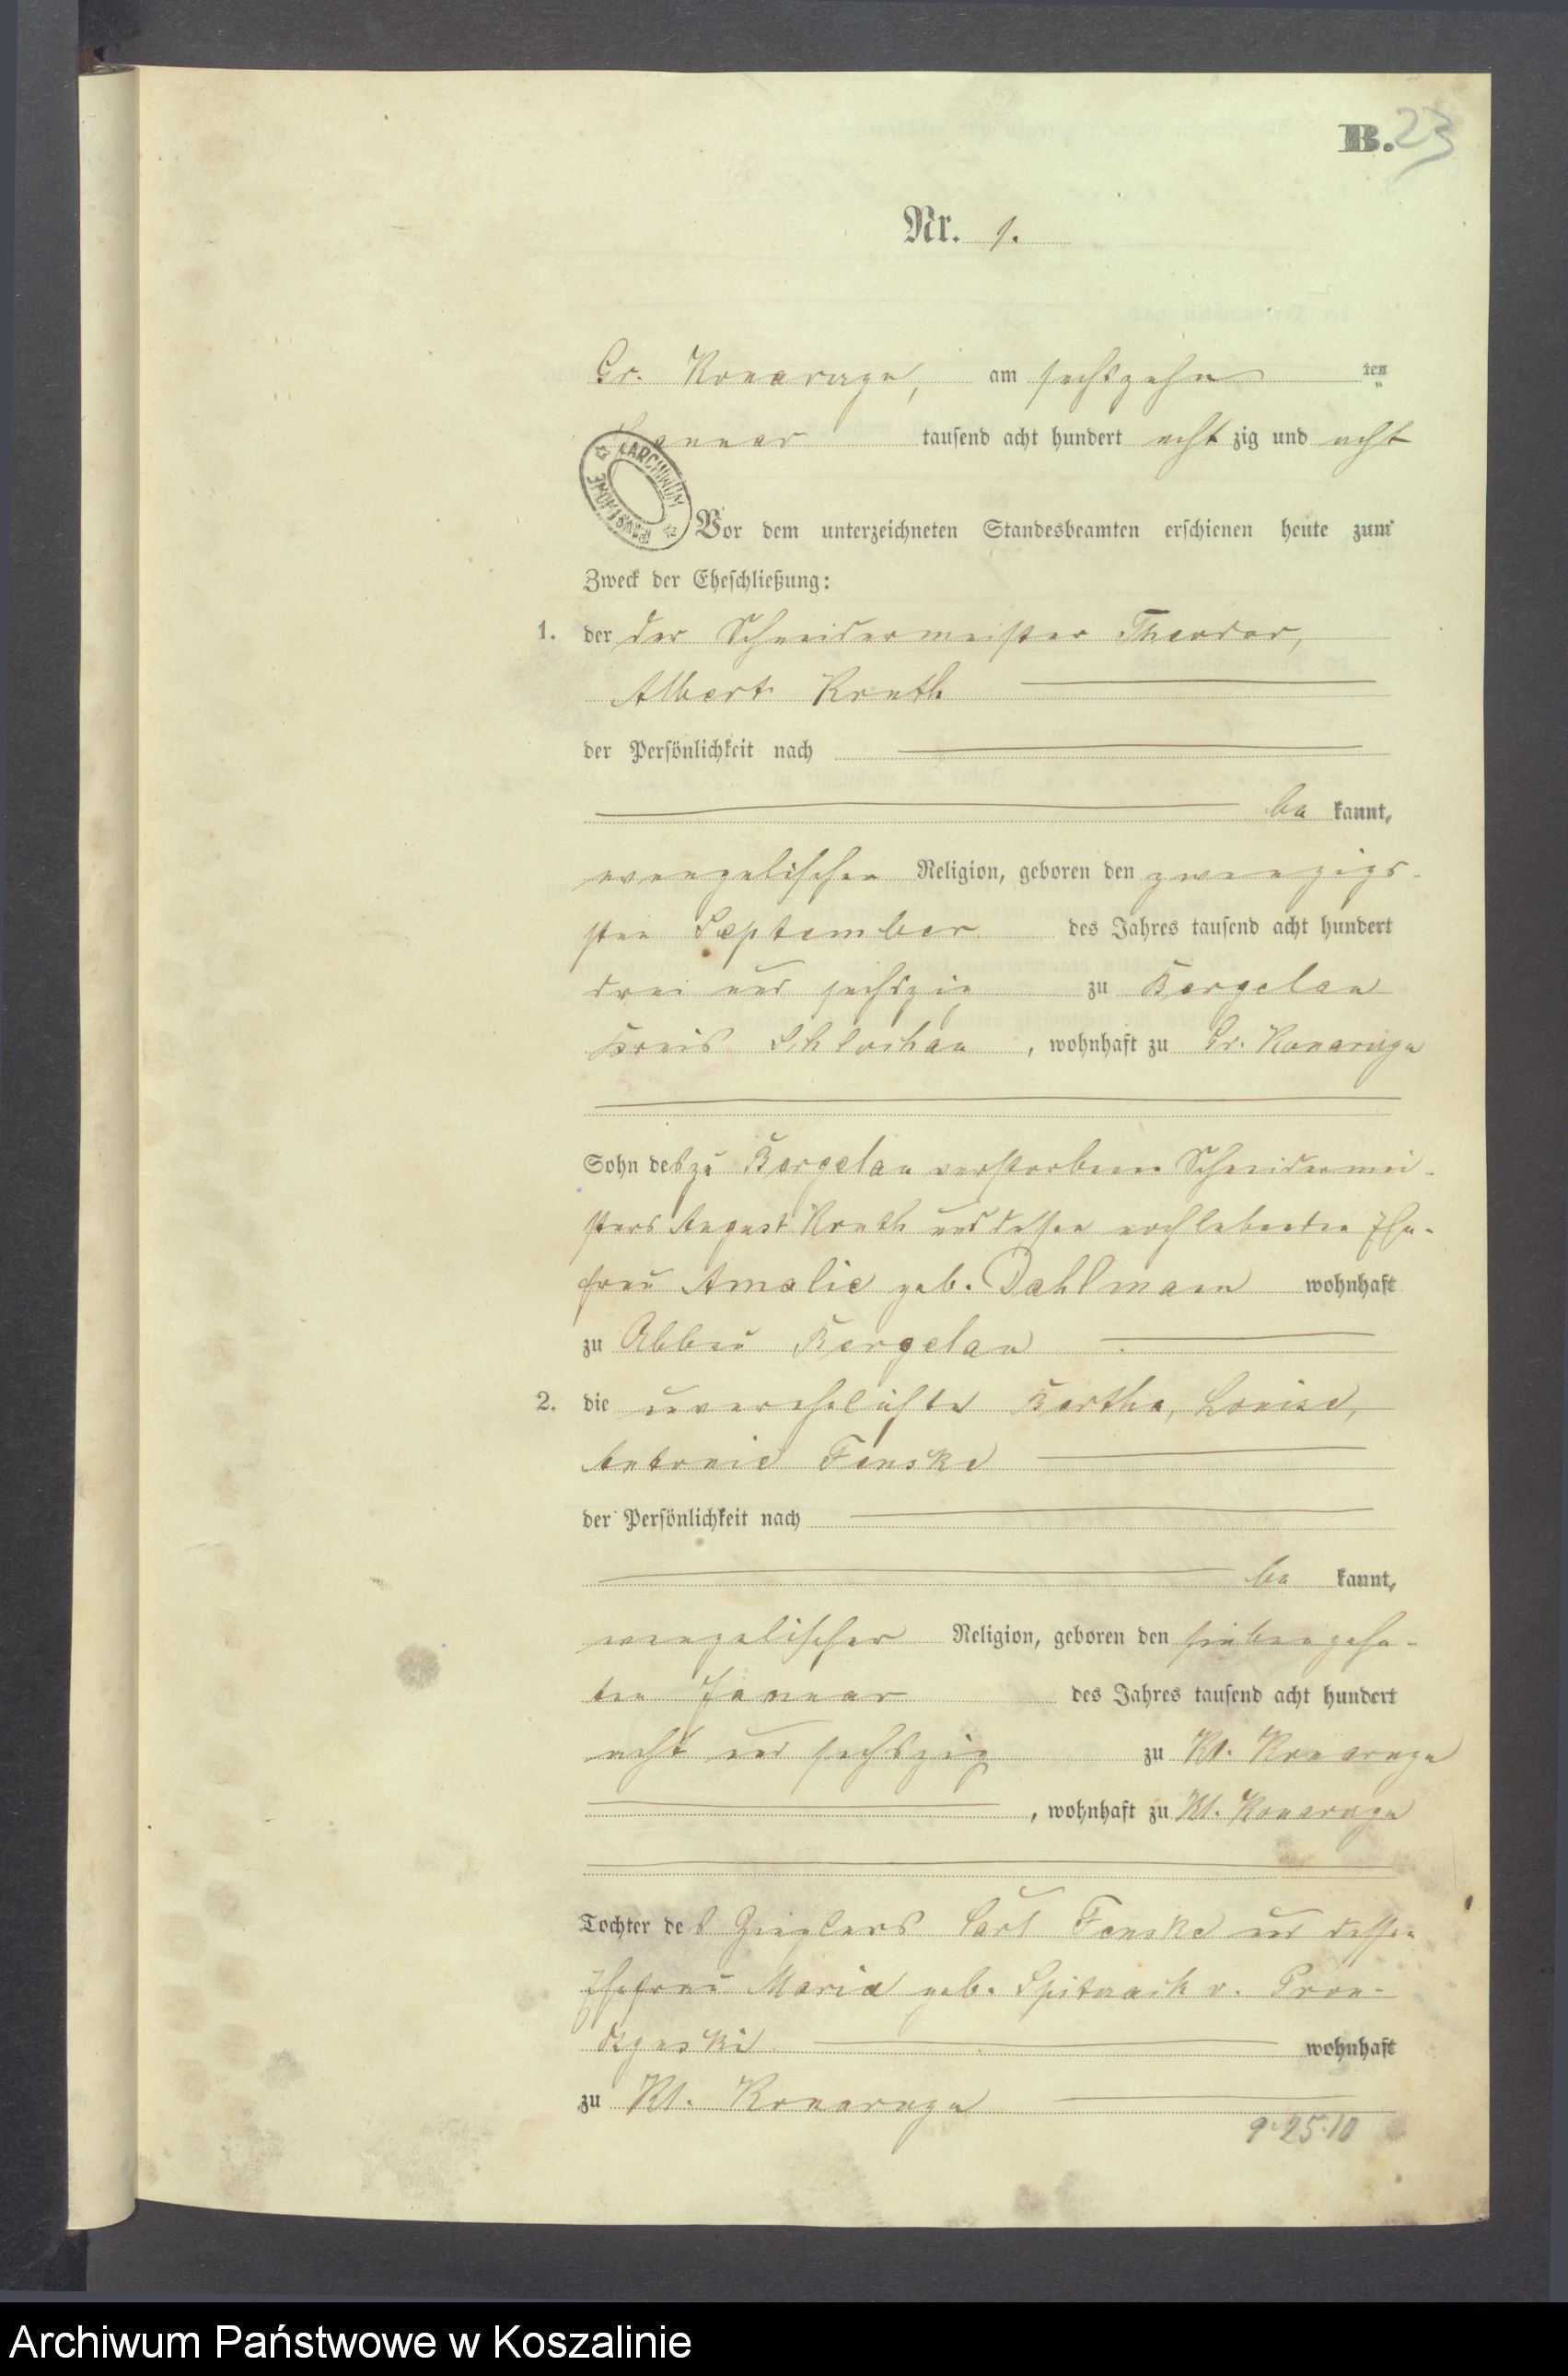 B. 23
Nr. 1.
Gr. Konarczyn, am sechszehn ten
Januar tausend acht hundert acht zig und acht
ARCHIWUM
PAŃSTWOWE
Vor dem unterzeichneten Standesbeamten erschienen heute zum
Zweck der Eheschließung:
1. der der Schneidermeister Theodor,
Albert
der Persönlichkeit nach
be kannt,
evangelischer Religion, geboren den zwanzigs-
ten September des Jahres tausend acht hundert
drei und sechszig zu Bergelau
Kreis Schlochau, wohnhaft zu Gr.
Sohn des zu Bergelau verstorbenen Schneidermei-
sters August und dessen noch lebenden Ehe-
frau Amalie geb. Dahlmann wohnhaft
zu Abbau Bergelau
2. die unverehelichte Bertha, Louise,
Antonie Fenske
der Persönlichkeit nach
be kannt,
evangelischer Religion, geboren den siebenzehn-
ten Januar des Jahres tausend acht hundert
acht und sechszig zu Kl.
, wohnhaft zu Kl.
Tochter des Zieglers Carl Fenske und dessen
Ehefrau Maria geb. v. Pron-
dzynski wohnhaft
zu Kl.
9.25.10
Archiwum Państwowe w Koszalinie